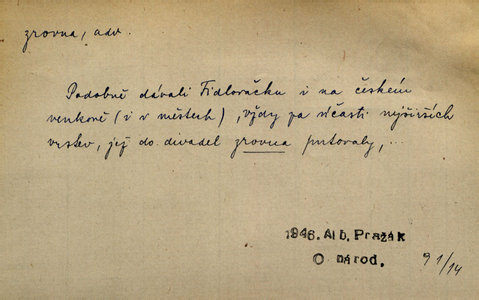 zrovna, adv.
Podobně dávali Fidlovačku i na českém
venkově (i v městech), vždy za účasti nejširších
vrstev, jež do divadel zrovna putovaly,...
1946. Alb. Pražák
O národ.
91/14